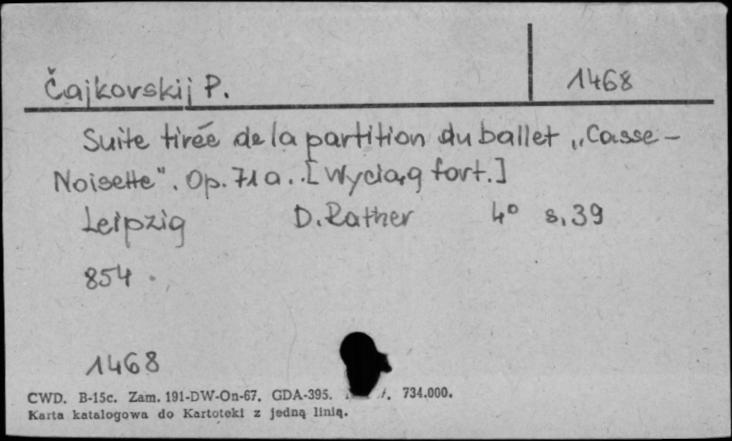 Čajkovskij P.
1468
Suite tirée de la partition du ballet „Casse-
Noisette". Op. 71a.. [Wyciąg fort.]
Leipzig D. Rather 4° s. 39
854
1468
CWD. B-15c. Zam. 191-DW-On-67. GDA-395. 734.000.
Karta katalogowa do Kartoteki z jedną linią.